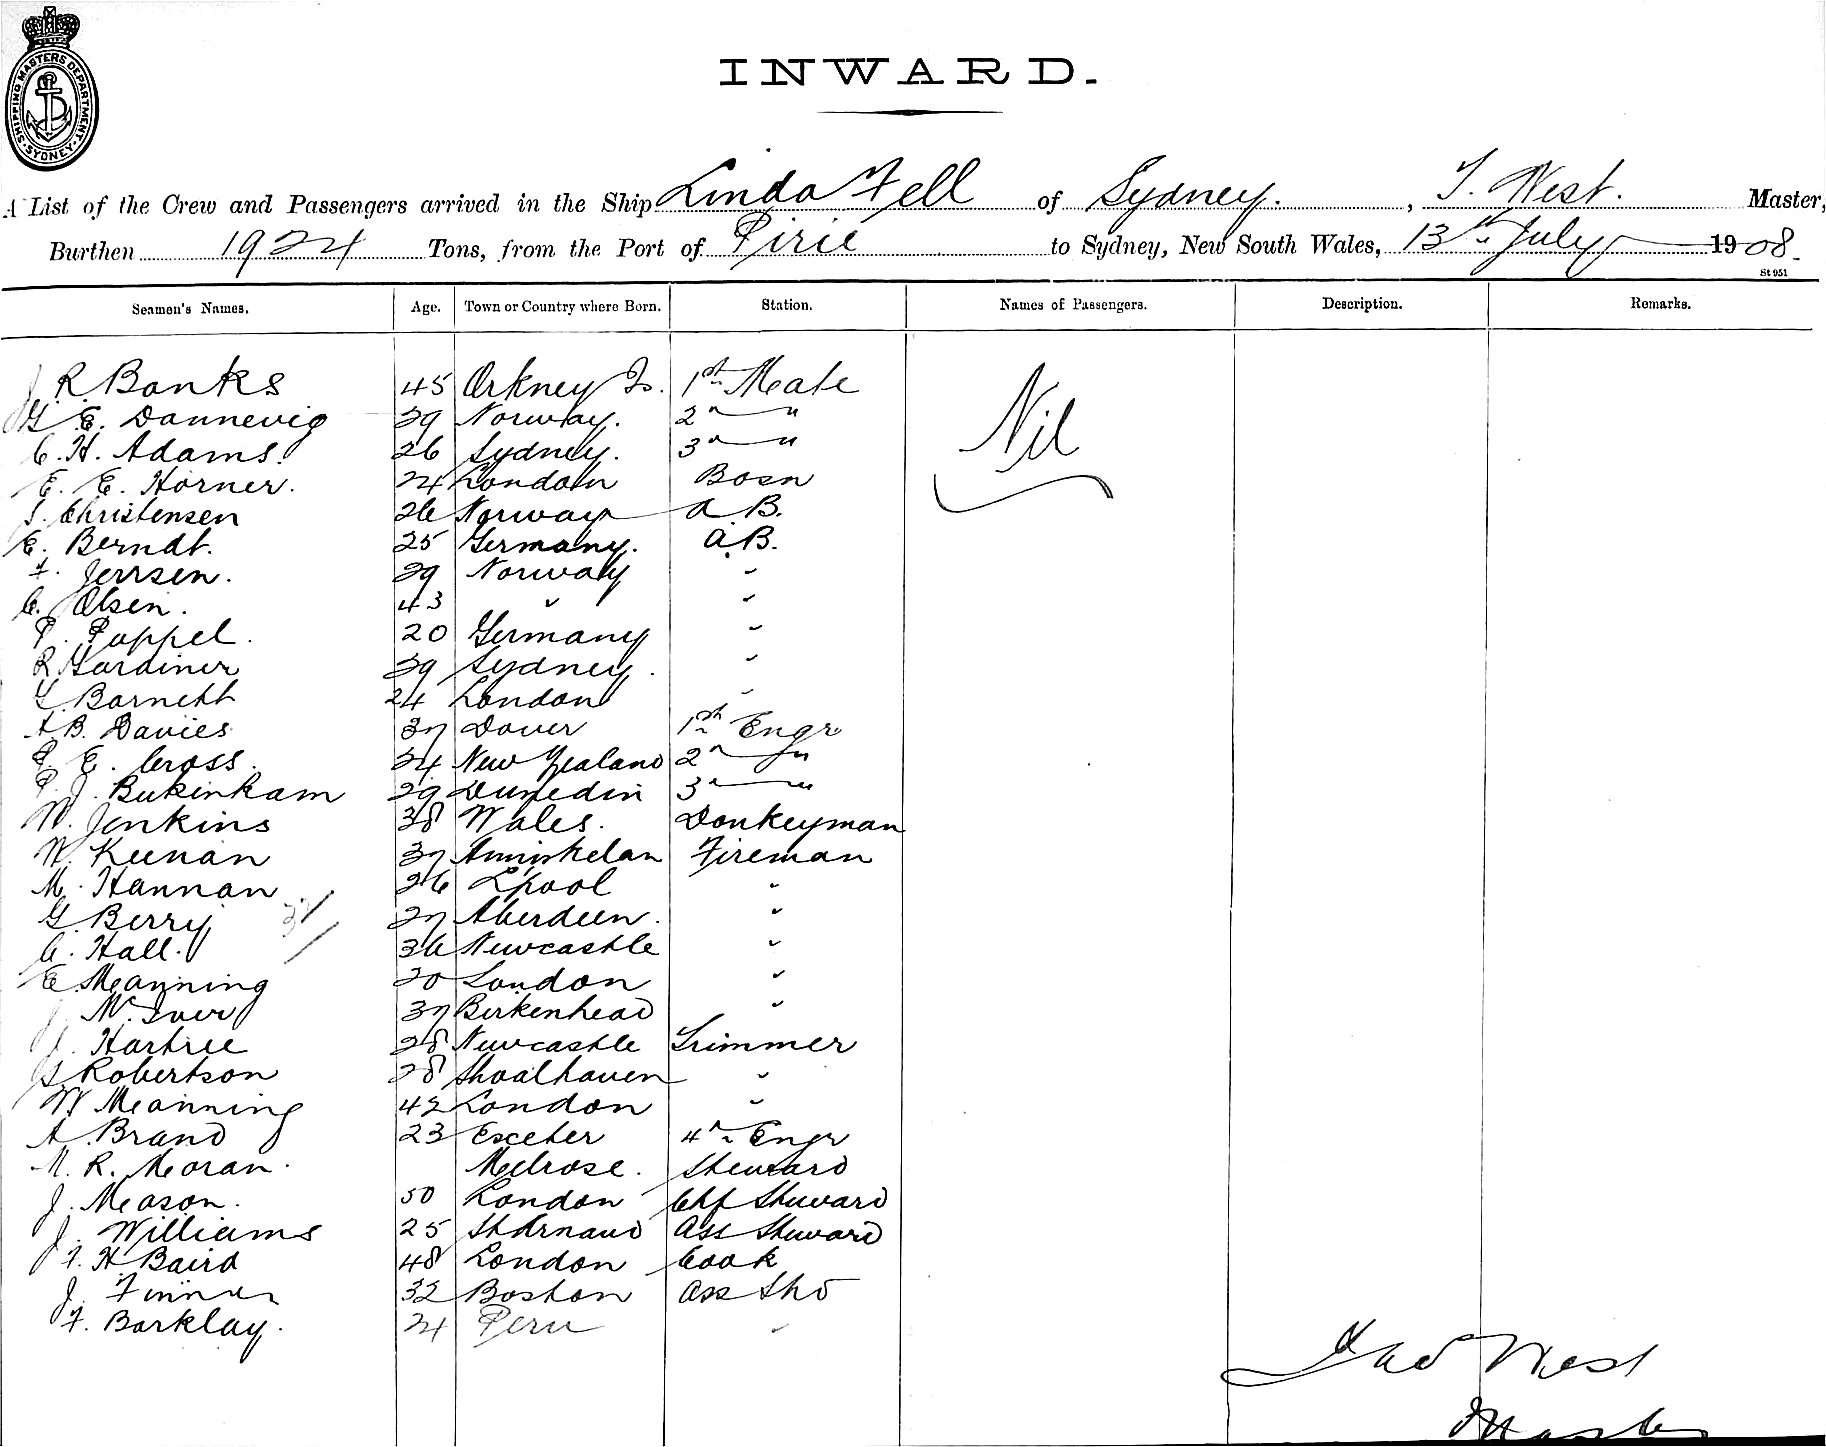 SHIPPING MASTERS DEPARTMENT · SYDNEY ·
INWARD.
A List of the Crew and Passengers arrived in the Ship Linda Fell of Sydney. , T. West. Master,
Burthen 1924 Tons, from the Port of Pirie to Sydney, New South Wales, 13th July 1908.
St 951
Seamen's Names. Age. Town or Country where Born. Station. Names of Passengers. Description. Remarks.
J R Banks 45 Orkney Is. 1st Mate Nil
G E. Dannevig 39 Norway. 2 "
C. H. Adams. 26 Sydney. 3 "
E. E. Horner. 24 London Bosn
Christensen 26 Norway A B.
E. Berndt. 25 Germany. A.B.
F. Jerrsen. 29 Norway "
C. Olsen. 43 " "
P. Pappel. 20 Germany "
R Gardiner 39 Sydney. "
Barnett 24 London "
A B. Davies 37 Dover 1st Engr
P. E. Cross. 34 New Zealand 2 "
P. J. Bukinkam 29 Dunedin 3 "
W. Jenkins 38 Wales. Donkeyman
W. Keenan 37 Fireman
M. Hannan 26 L'pool "
G. Berry 27 Aberdeen. "
C. Hall. 36 Newcastle "
E. Manning 20 London "
J. McIver 37 Birkenhead "
J. Hartree 28 Newcastle Trimmer
Robertson 28 Shoalhaven "
W Manning 42 London "
A. Brand 23 Exeter 4th Engr
M. R. Moran. Melrose. Steward
J. Mason. 50 London Chf Steward
J. Williams 25 St Arnaud Ass Steward
F. H Baird 48 London Cook
J. 32 Boston Ass Std
F. Barklay. 24 Peru "
West
Master